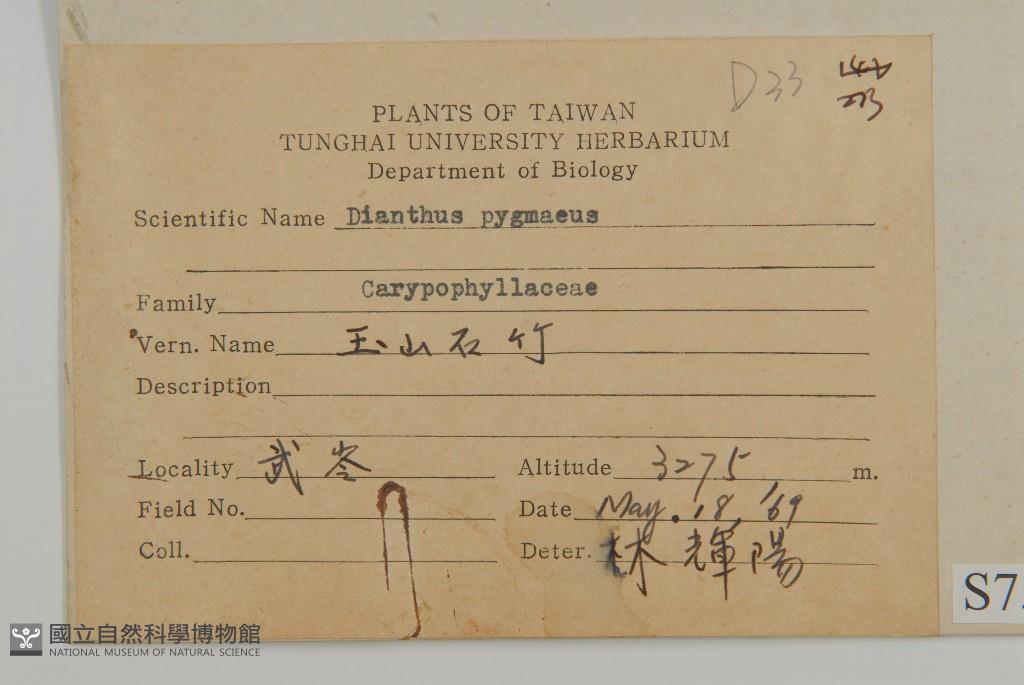 D33 147
273
PLANTS OF TAIWAN
TUNGHAI UNIVERSITY HERBARIUM
Department of Biology
Scientific Name Dianthus pygmaeus
Family Carypophyllaceae
Vern. Name 玉山石竹
Description
Locality 武岺 Altitude 3275 m.
Field No. Date May. 18, '69
Coll. Deter. 林輝陽
S7
國立自然科學博物館
NATIONAL MUSEUM OF NATURAL SCIENCE